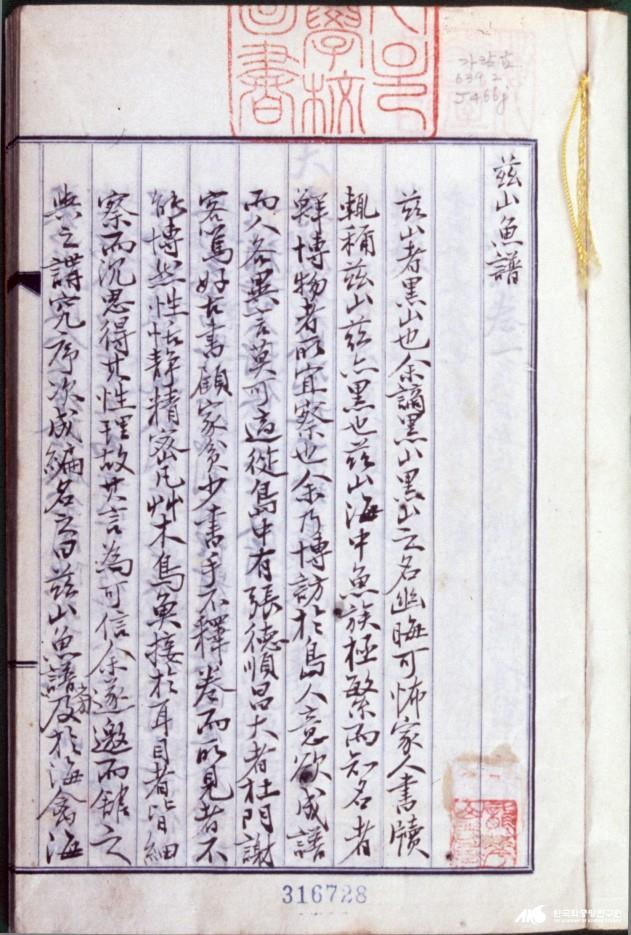 玆山魚譜
玆山者黑山也余謫黑山黑山之名幽晦可怖家人書牘
輒稱玆山玆亦黑也玆山海中魚族極繁而知名者
鮮博物者所宜察也余乃博訪於島人意欲成譜
而人各異言莫可適從島中有張德順昌大者杜門謝
客篤好古書顧家貧少書手不釋卷而所見者不
能博然性恬靜精密凡艸木鳥魚接於耳目者皆細
察而沉思得其性理故其言為可信余遂邀而館之
與之講究序次成編名之曰玆山魚譜旁及於海禽海
學校
圖書
가람古
639.2
J466j
316728
AKS 한국학중앙연구원